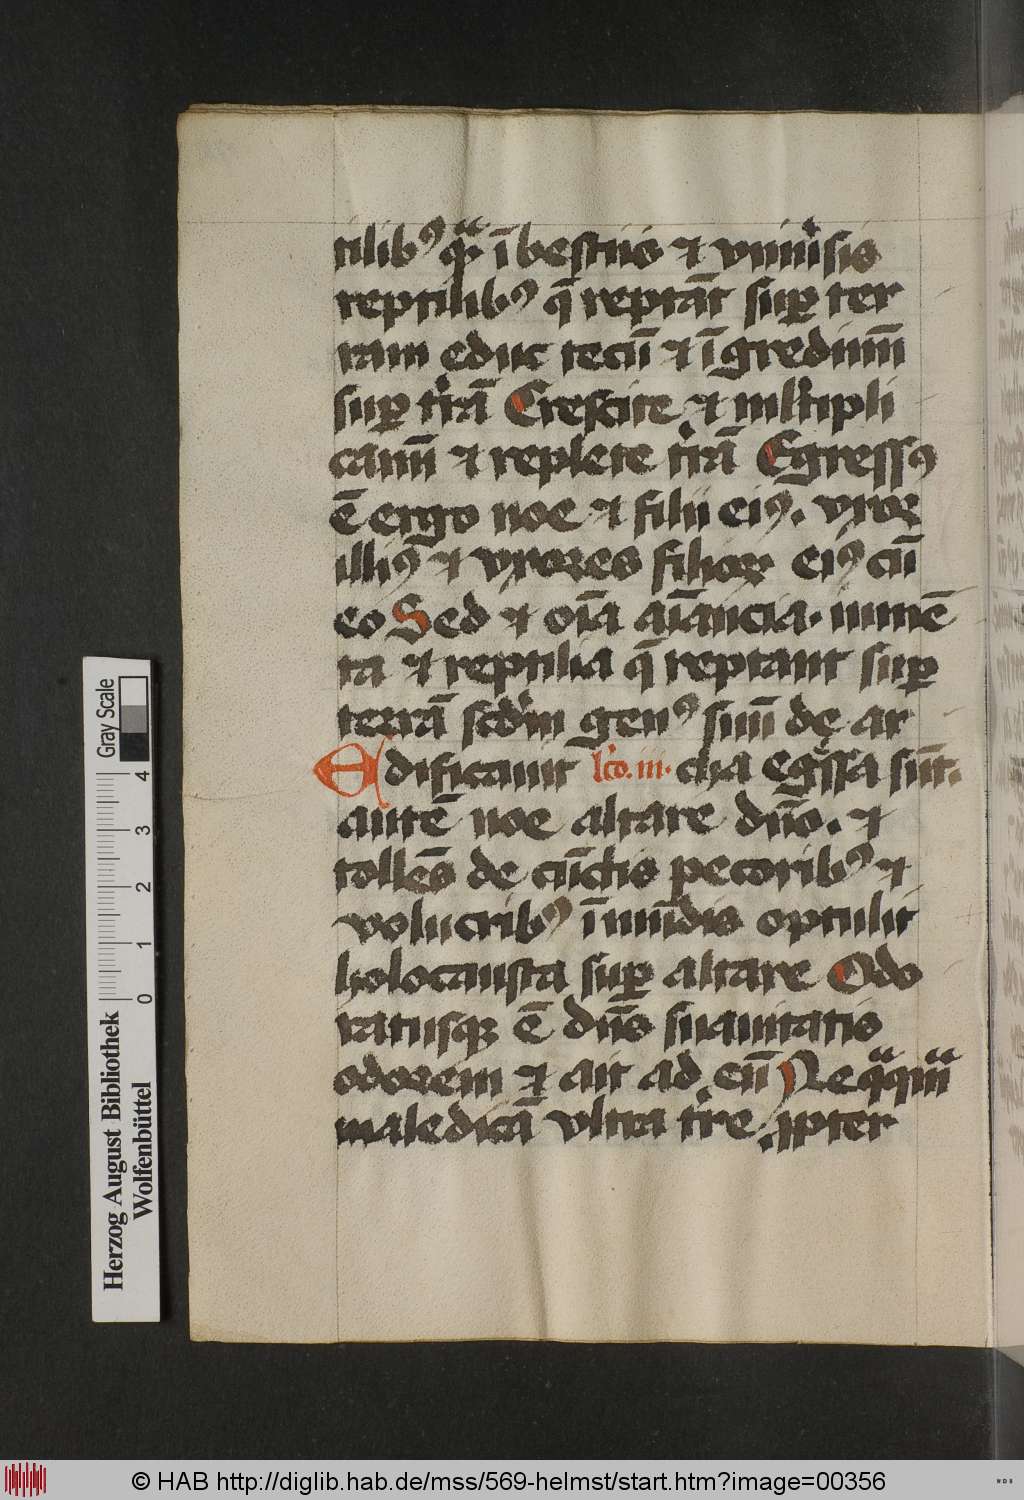 tilibꝰ qᷓ. ī bestiis ⁊ vniuͥsis
reptilibꝰ q̄ reptāt suꝑ ter
ram educ tecū ⁊ īgredimī
suꝑ tͥrā Crescite ⁊ mlͥtipli
camī ⁊ replete tͥrā Egressꝰ
ē ergo noe ⁊ filii eiꝰ. vxor
illiꝰ ⁊ vxores filioꝝ eiꝰ cū
eo Sed ⁊ oīa aīancia. iumē
ta ⁊ reptilia q̄ reptant suꝑ
terrā scdͥm genꝰ suū de ar
Edificauit lͨco. iii. cha egͥssa sūt.
autē noe altare dn̄o. ⁊
tollēs de cūctis pecoribꝰ ⁊
volucribꝰ īmūdis optulit
holocausta suꝑ altare Odo
ratusqꝫ ē dn̄s suauitatis
odorem ⁊ ait ad eū Neqᷓqᷓm
maledicā vltra tͥre ꝓpter
Herzog August Bibliothek
Wolfenbüttel
0 1 2 3 4
Gray Scale
© HAB http://diglib.hab.de/mss/569-helmst/start.htm?image=00356